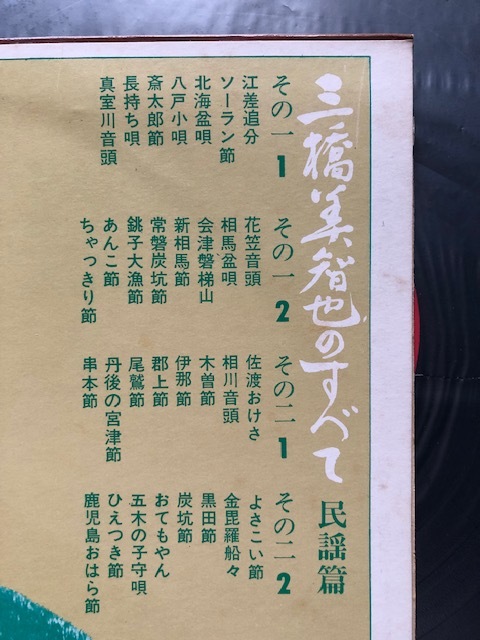 三橋美智也のすべて 民謡篇
その一 1
江差追分
ソーラン節
北海盆唄
八戸小唄
斎太郎節
長持ち唄
真室川音頭
その一 2
花笠音頭
相馬盆唄
会津磐梯山
新相馬節
常磐炭坑節
銚子大漁節
あんこ節
ちゃっきり節
その二 1
佐渡おけさ
相川音頭
木曽節
伊那節
郡上節
尾鷲節
丹後の宮津節
串本節
その二 2
よさこい節
金毘羅船々
黒田節
炭坑節
おてもやん
五木の子守唄
ひえつき節
鹿児島おはら節